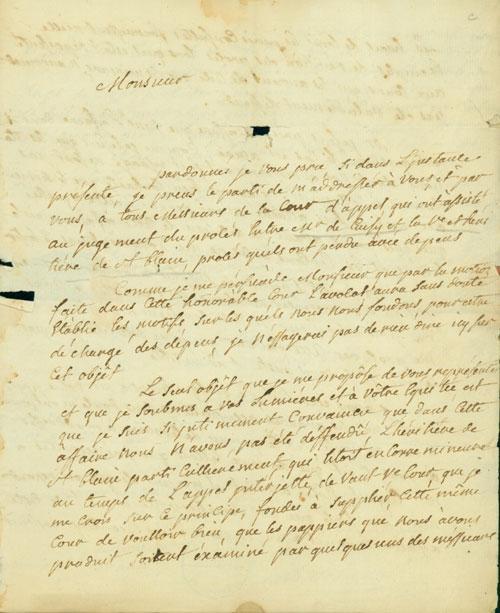 Monsieur
pardonnes je vous prie si dans L'instance
présente, je prens le parti de m'addresser à Vous, et par
vous, a tous Messieurs de la Cour d'appel qui ont assisté
au jugement du procès Entre Mr de Cuisy et la Ve et heri
tière de St Blain, procès quils ont perdu avec depens
Comme je me persuade Monsieur que par la motion
faite dans Cette honorable Cour L'avocat aura sans doute
Etablie les motifs, sur les quels nous nous fondons pour etre
dé chargé des depens, je n'éssayerai pas de rien dire icy sur
Cet objét
Le seul objét que je me propose de vous représenter
et que je soubmes a vos Lumières et à votre Equitée est
que je suis si intimement Convaincu que dans Cette
affaire nous n'avons pas été déffendu, L'heritière de
St Blain parti Cullierement qui étoit encore mineure
au temps de L'appel interjetté, devant Ve Cour, que je
me crois sur Ce principe, fondée à supplier Cette même
Cour de vouloir bien, que les pappiers que nous avons
produit soient examiné par quelques uns des messieurs